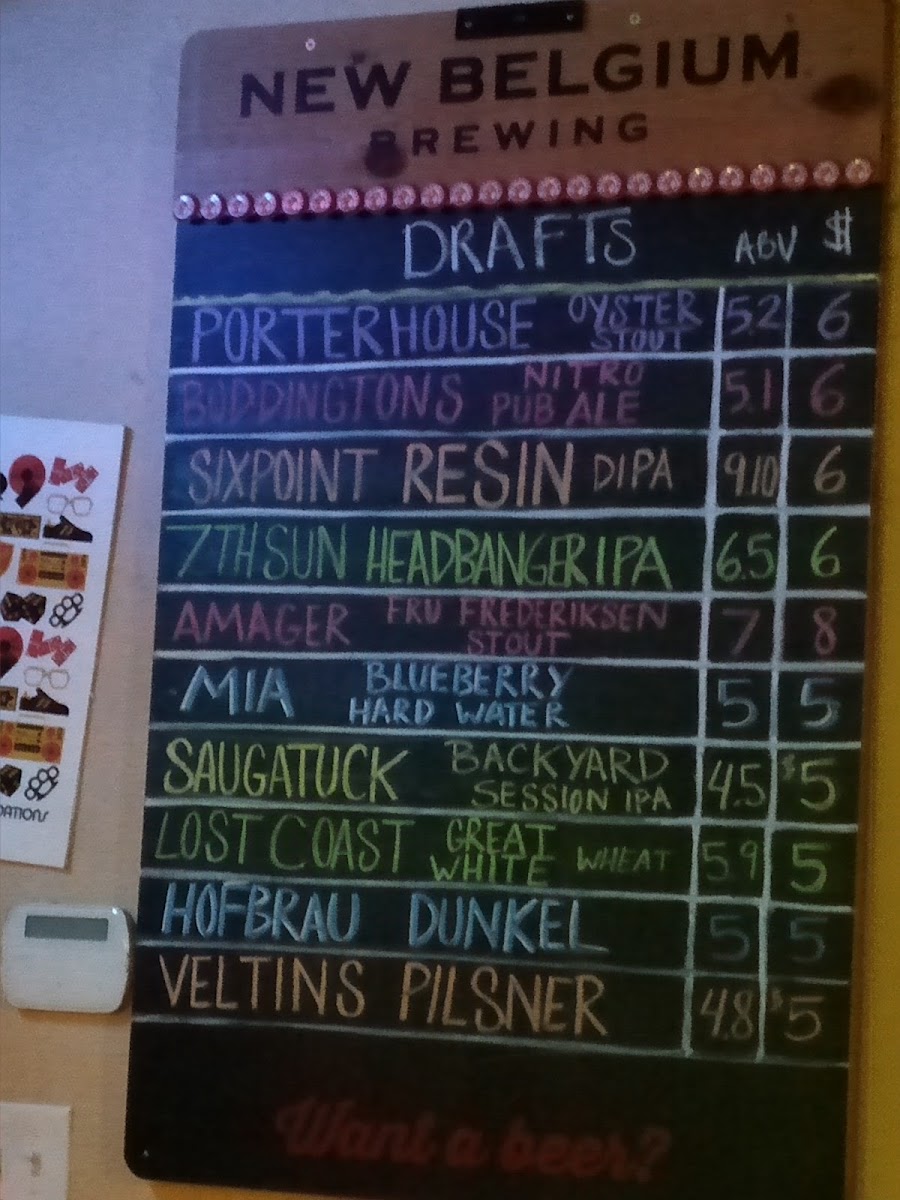 NEW BELGIUM
BREWING
DRAFTS ABV $
PORTERHOUSE OYSTER STOUT 5.2 6
BODDINGTONS NITRO PUB ALE 5.1 6
SIXPOINT RESIN DIPA 9.10 6
7TH SUN HEADBANGER IPA 6.5 6
AMAGER FRU FREDERIKSEN STOUT 7 8
MIA BLUEBERRY HARD WATER 5 5
SAUGATUCK BACKYARD SESSION IPA 4.5 $5
LOST COAST GREAT WHITE WHEAT 5.9 5
HOFBRAU DUNKEL 5 5
VELTINS PILSNER 4.8 $5
Want a beer?